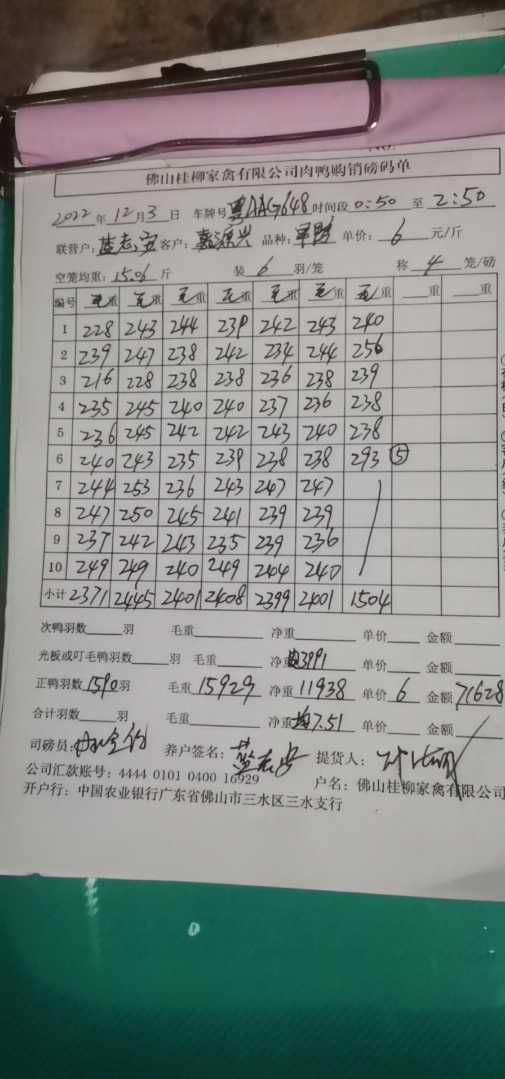 佛山桂柳家禽有限公司肉鸭购销磅码单
2022年12月3日 车牌号粤AAG648时间段0:50至2:50
联营户:蓝志安客户:嘉源兴 品种: 单价:6元/斤
空笼均重:15.06斤 装6羽/笼 称4笼/磅
编号 毛重 毛重 毛重 毛重 毛重 毛重 毛重 重 重
1 228 243 244 239 242 243 240
2 239 247 238 242 234 244 256
3 216 228 238 238 236 238 239
4 235 245 240 240 237 236 238
5 236 245 242 242 243 240 238
6 240 243 235 239 238 238 293 ⑤
7 244 253 236 243 247 247
8 247 250 245 241 239 239
9 237 242 243 235 239 236
10 249 249 240 249 244 240
小计 2371 2445 2401 2408 2399 2401 1504
次鸭羽数 羽 毛重 净重 单价 金额
光板或叮毛鸭羽数 羽 毛重 净重 3991 单价 金额
正鸭羽数1590羽 毛重15929 净重11938 单价6 金额71628
合计羽数 羽 毛重 净重均7.51 单价 金额
司磅员: 养户签名:蓝志安 提货人:
公司汇款账号:4444 0101 0400 16929 户名:佛山桂柳家禽有限公司
开户行:中国农业银行广东省佛山市三水区三水支行